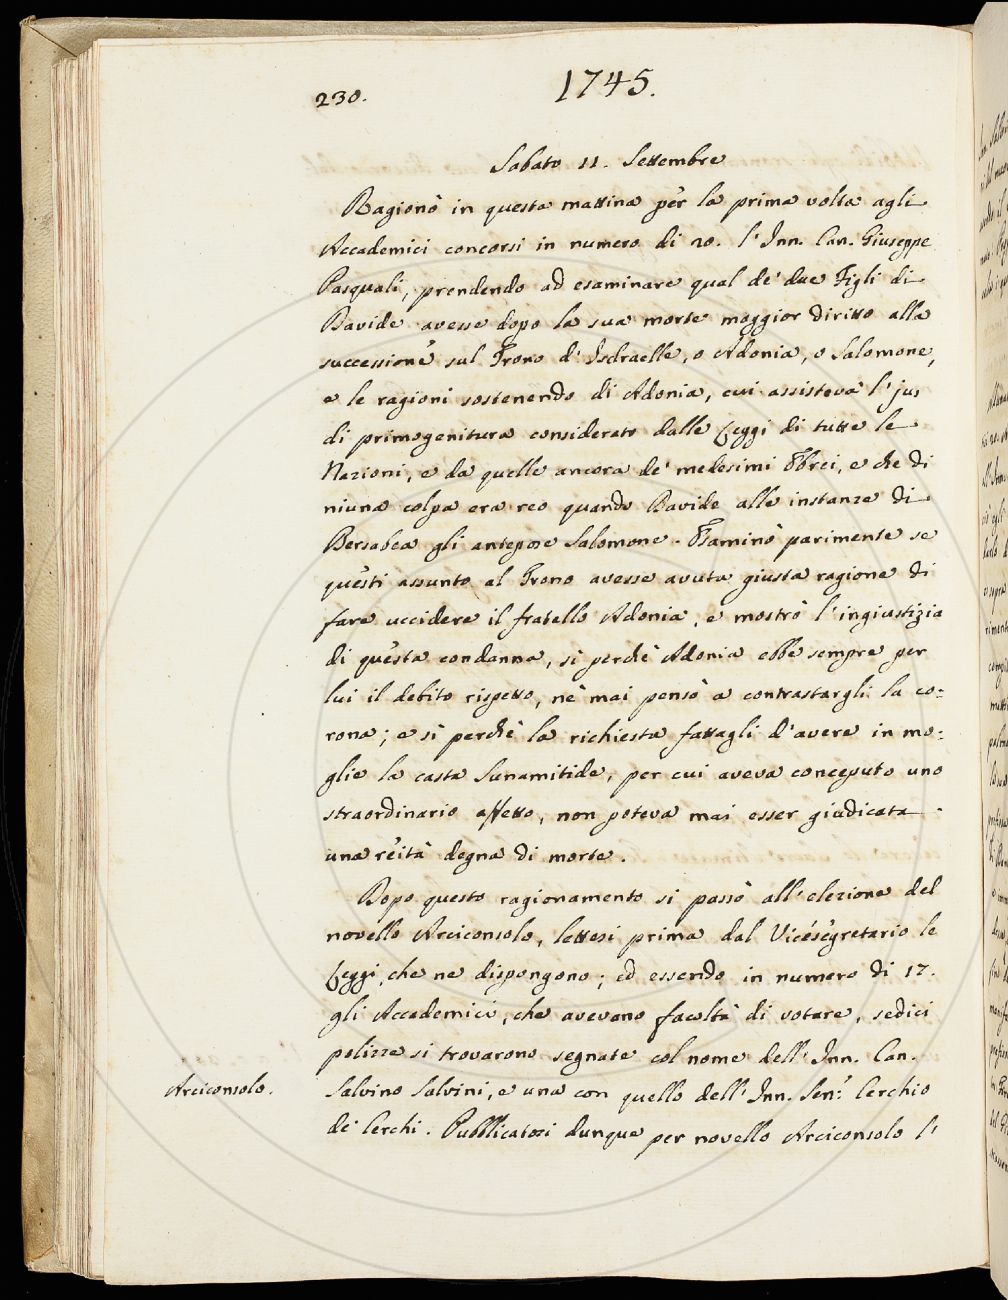 230.
1745.
Sabato 11. Settembre
Ragionò in questa mattina per la prima volta agli
Accademici concorsi in numero di 20. l'Inn. Can. Giuseppe
Pasquali, prendendo ad esaminare qual de' due Figli di
Davide avesse dopo la sua morte maggior diritto alla
successione sul Trono d'Isdraelle, o Adonia, o Salomone,
e le ragioni sostenendo di Adonia, cui assisteva l'jus
di primogenitura considerato dalle Leggi di tutte le
Nazioni, e da quelle ancora de' medesimi Ebrei, e che di
niuna colpa era reo quando Davide alle instanze di
Bersabea gli antepose Salomone. Esaminò parimente se
questi assunto al Trono avesse avuta giusta ragione di
fare uccidere il fratello Adonia, e mostrò l'ingiustizia
di questa condanna, sì perchè Adonia ebbe sempre per
lui il debito rispetto, nè mai pensò a contrastargli la co=
rona; e sì perchè la richiesta fattagli d'avere in mo=
glie la casta Sunamitide, per cui aveva conceputo uno
straordinario affetto, non poteva mai esser giudicata
una reità degna di morte.
Dopo questo ragionamento si passò all'elezione del
novello Arciconsolo, lettesi prima dal Vicesegretario le
Leggi, che ne dispongono; ed essendo in numero di 17.
gli Accademici, che avevano facoltà di votare, sedici
polizze si trovarono segnate col nome dell'Inn. Can.
Arciconsolo.
Salvino Salvini, e una con quello dell'Inn. Sen.r Cerchio
de' Cerchi. Pubblicatosi dunque per novello Arciconsolo l'